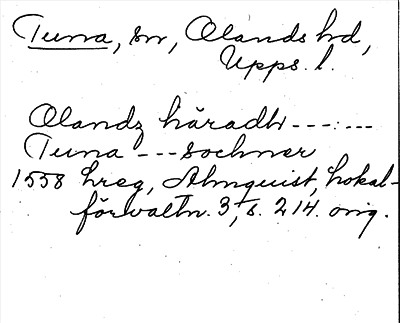 Tuna, sn, Olands hd,
Upps. l.
Olandz häradh ---:---
Tuna --- sochner
1558 hreg, Almquist, Lokal-
förvaltn. 3, s. 214. orig.